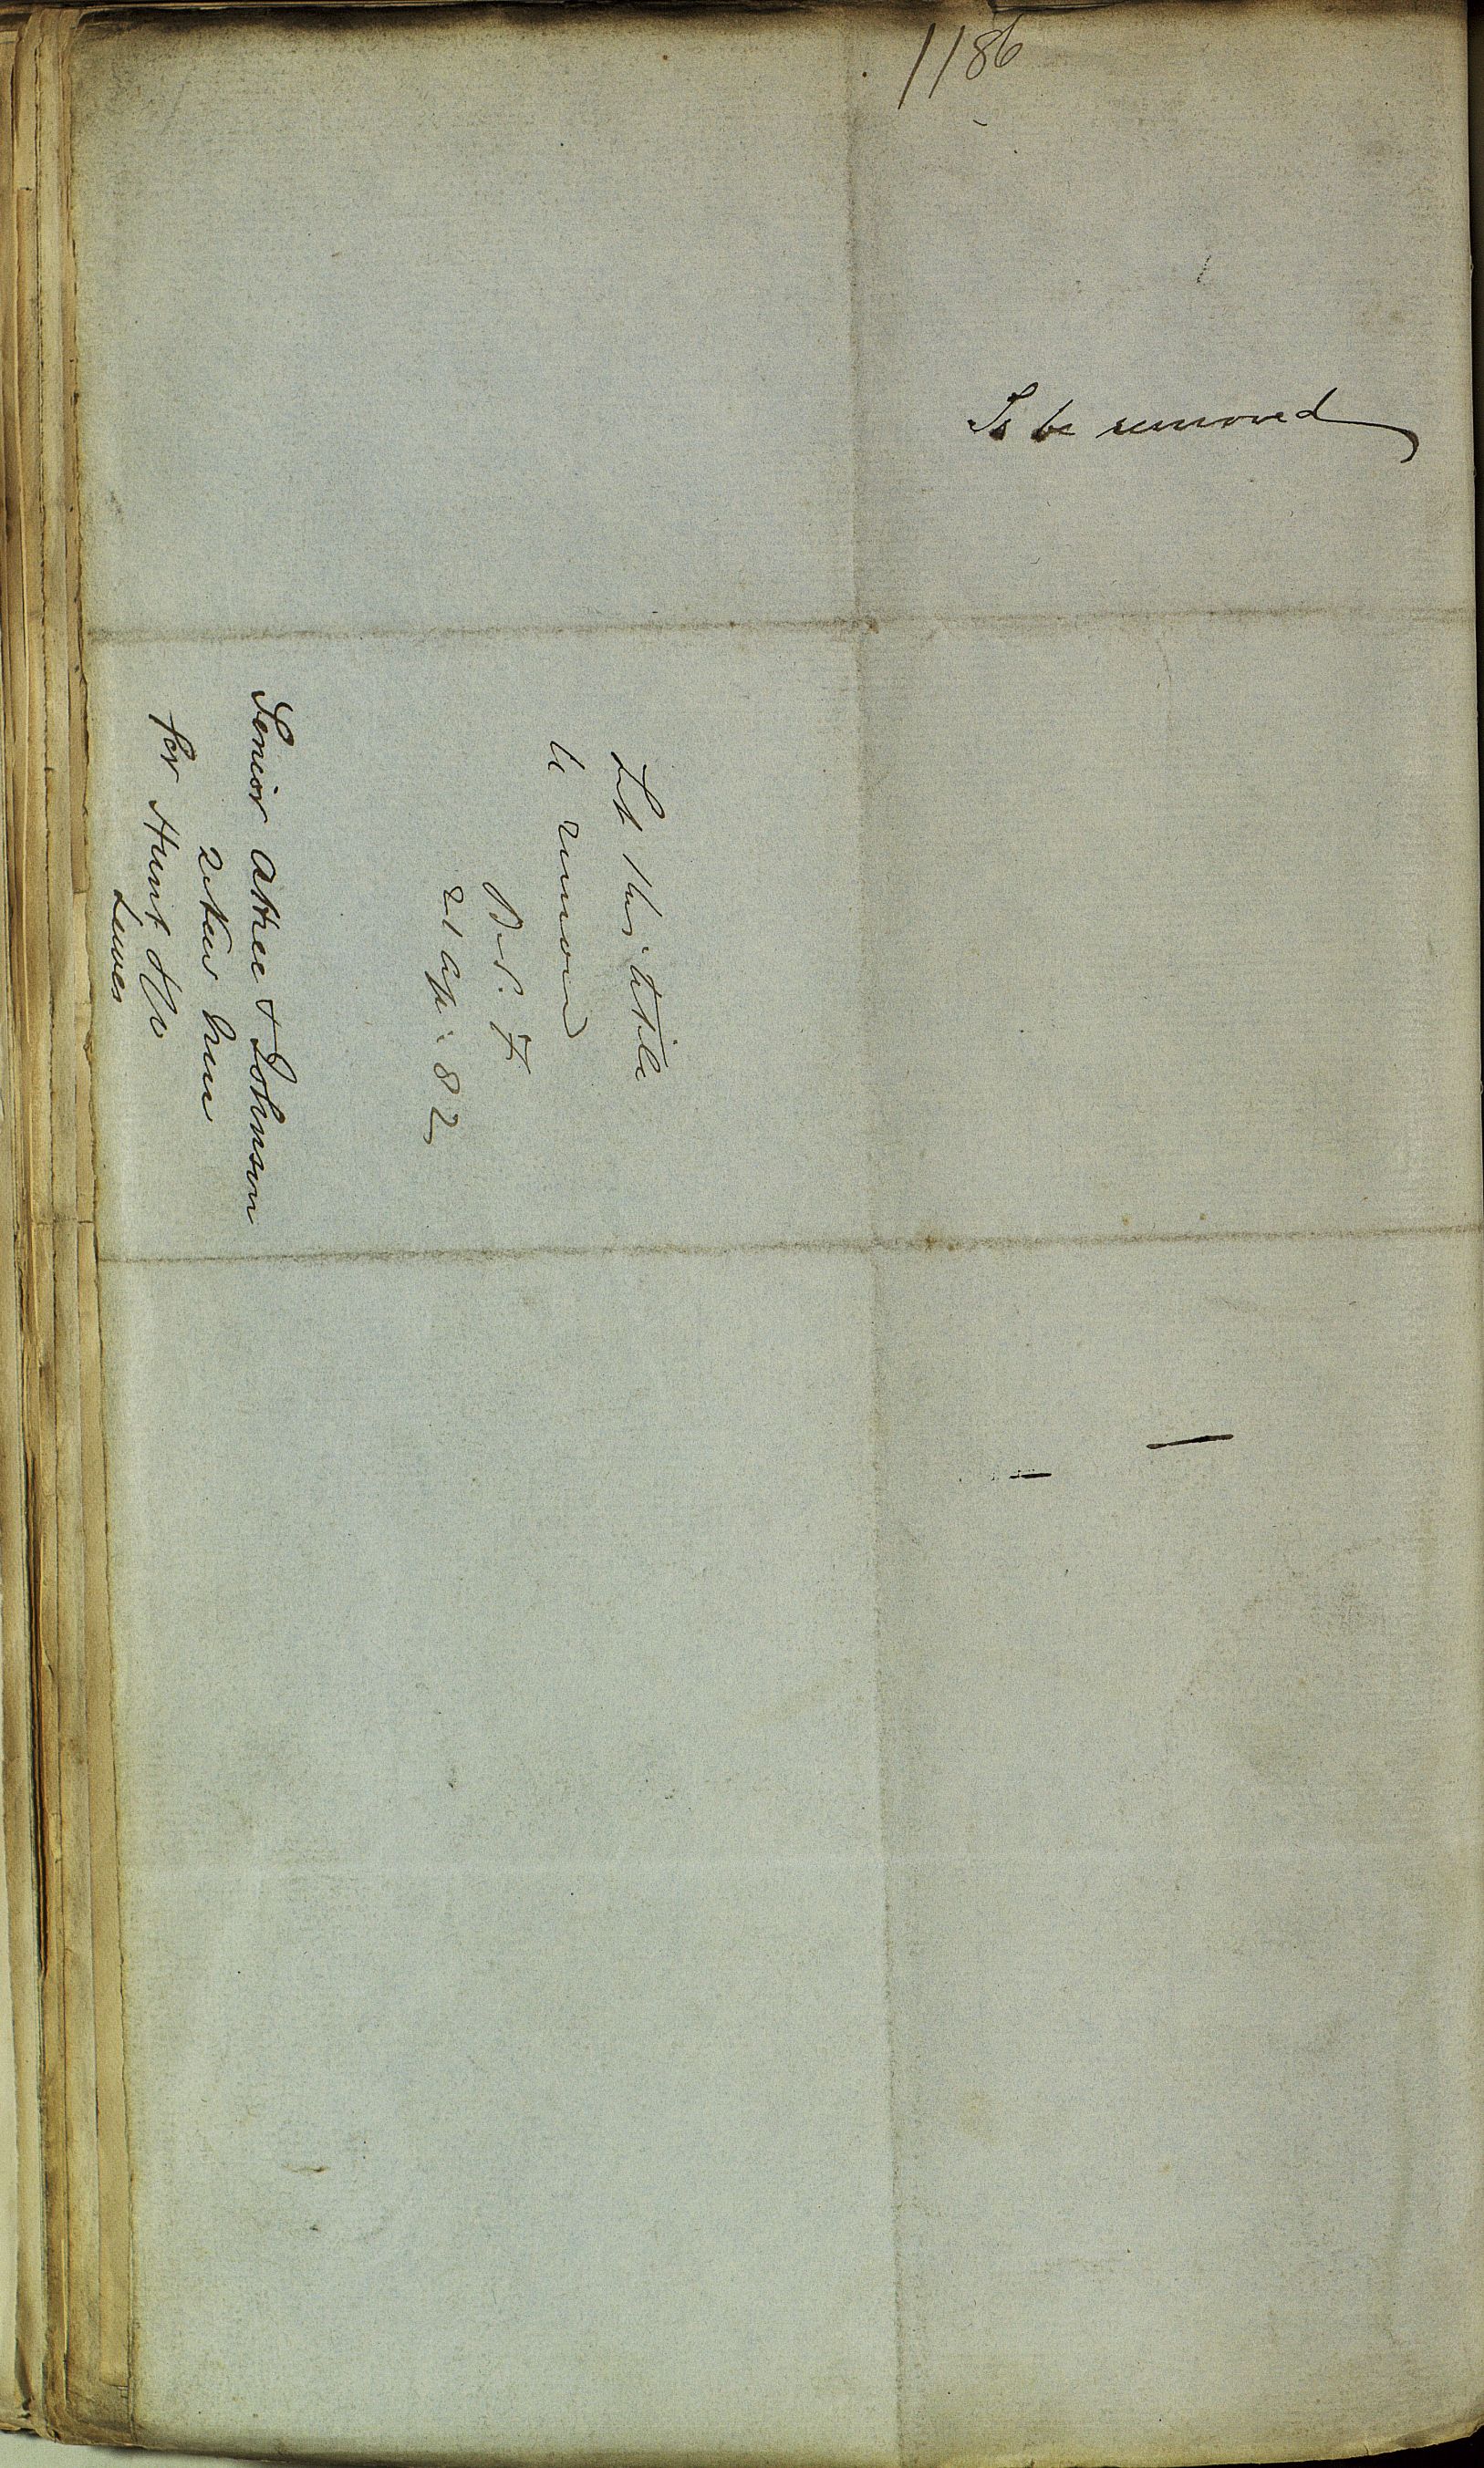 1186
To be removed
Let this article
be removed
21 Ap: 82
Senior Attree & Johnson
2 New Inn
for Hunt & Co
Lewes